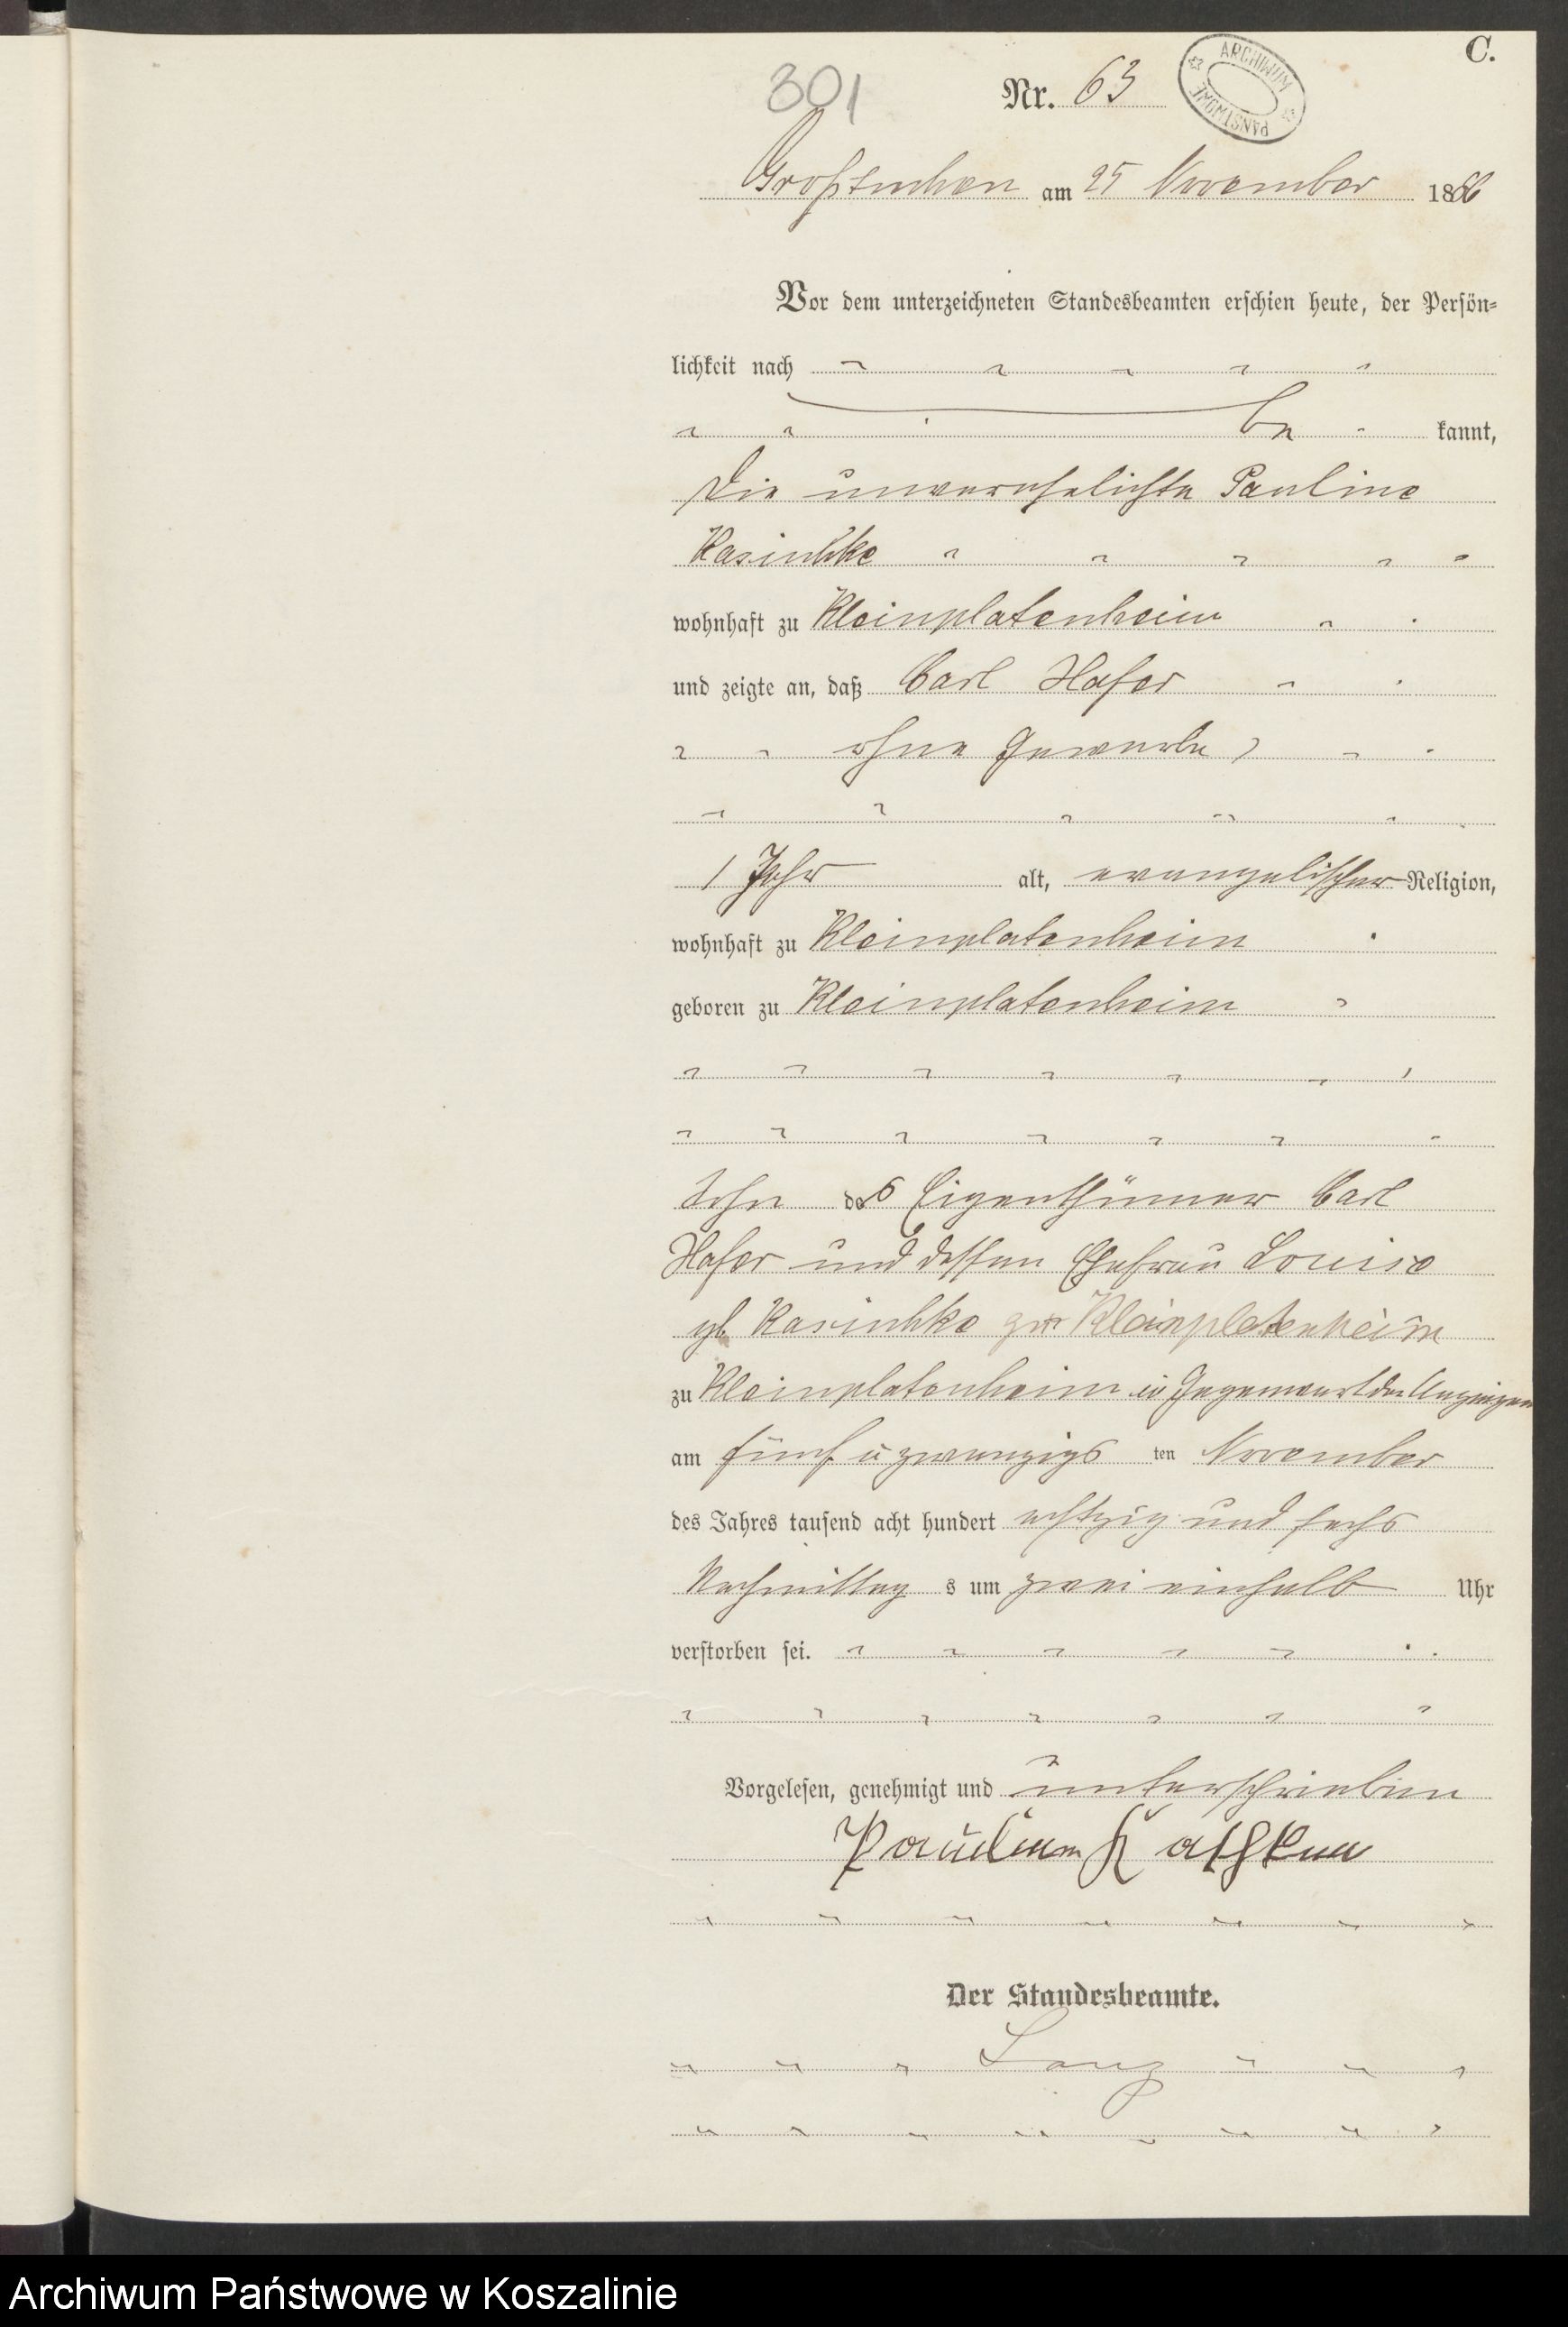 C.
301
Nr. 63
ARCHIWUM PAŃSTWOWE
Großtuchen am 25 November 1886
Vor dem unterzeichneten Standesbeamten erschien heute, der Persön-
lichkeit nach
be kannt,
die unverehelichte Pauline
Kasischke
wohnhaft zu Kleinplatenheim
und zeigte an, daß Carl Hofer
ohne Gewerbe
1 Jahr alt, evangelischer Religion,
wohnhaft zu Kleinplatenheim
geboren zu Kleinplatenheim
Sohn des Eigenthümer Carl
Hofer und dessen Ehefrau Louise
gb Kasischke zu Kleinplatenheim
zu Kleinplatenheim in Gegenwart der
am fünf u zwanzigs ten November
des Jahres tausend acht hundert achtzig und sechs
Nachmittag s um zwei einhalb Uhr
verstorben sei.
Vorgelesen, genehmigt und unterschrieben
Der Standesbeamte.
Archiwum Państwowe w Koszalinie